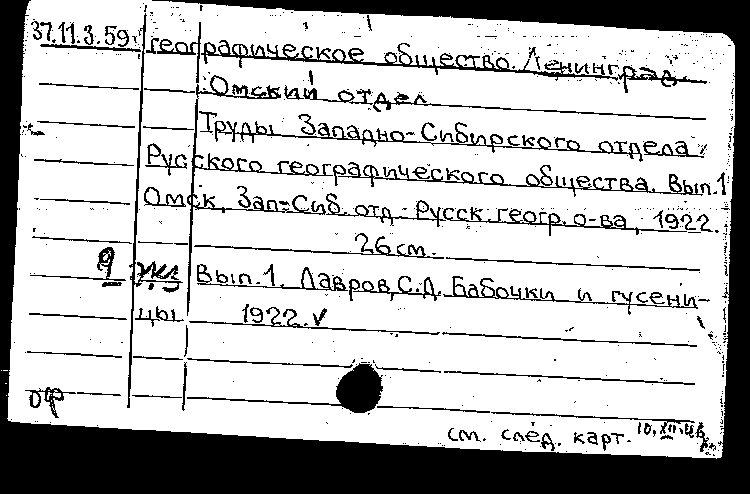 37.11.3.59. географическое общество. Ленинград.
Омский отдел
Труды Западно-Сибирского отдела
Русского географического общества. Вып.1
Омск, Зап=Сиб. отд. Русск. геогр. о-ва, 1922.
26см.
9 Вып.1. Лавров, С.Д. Бабочки и гусени-
цы 1922. V
оф
см. след. карт.